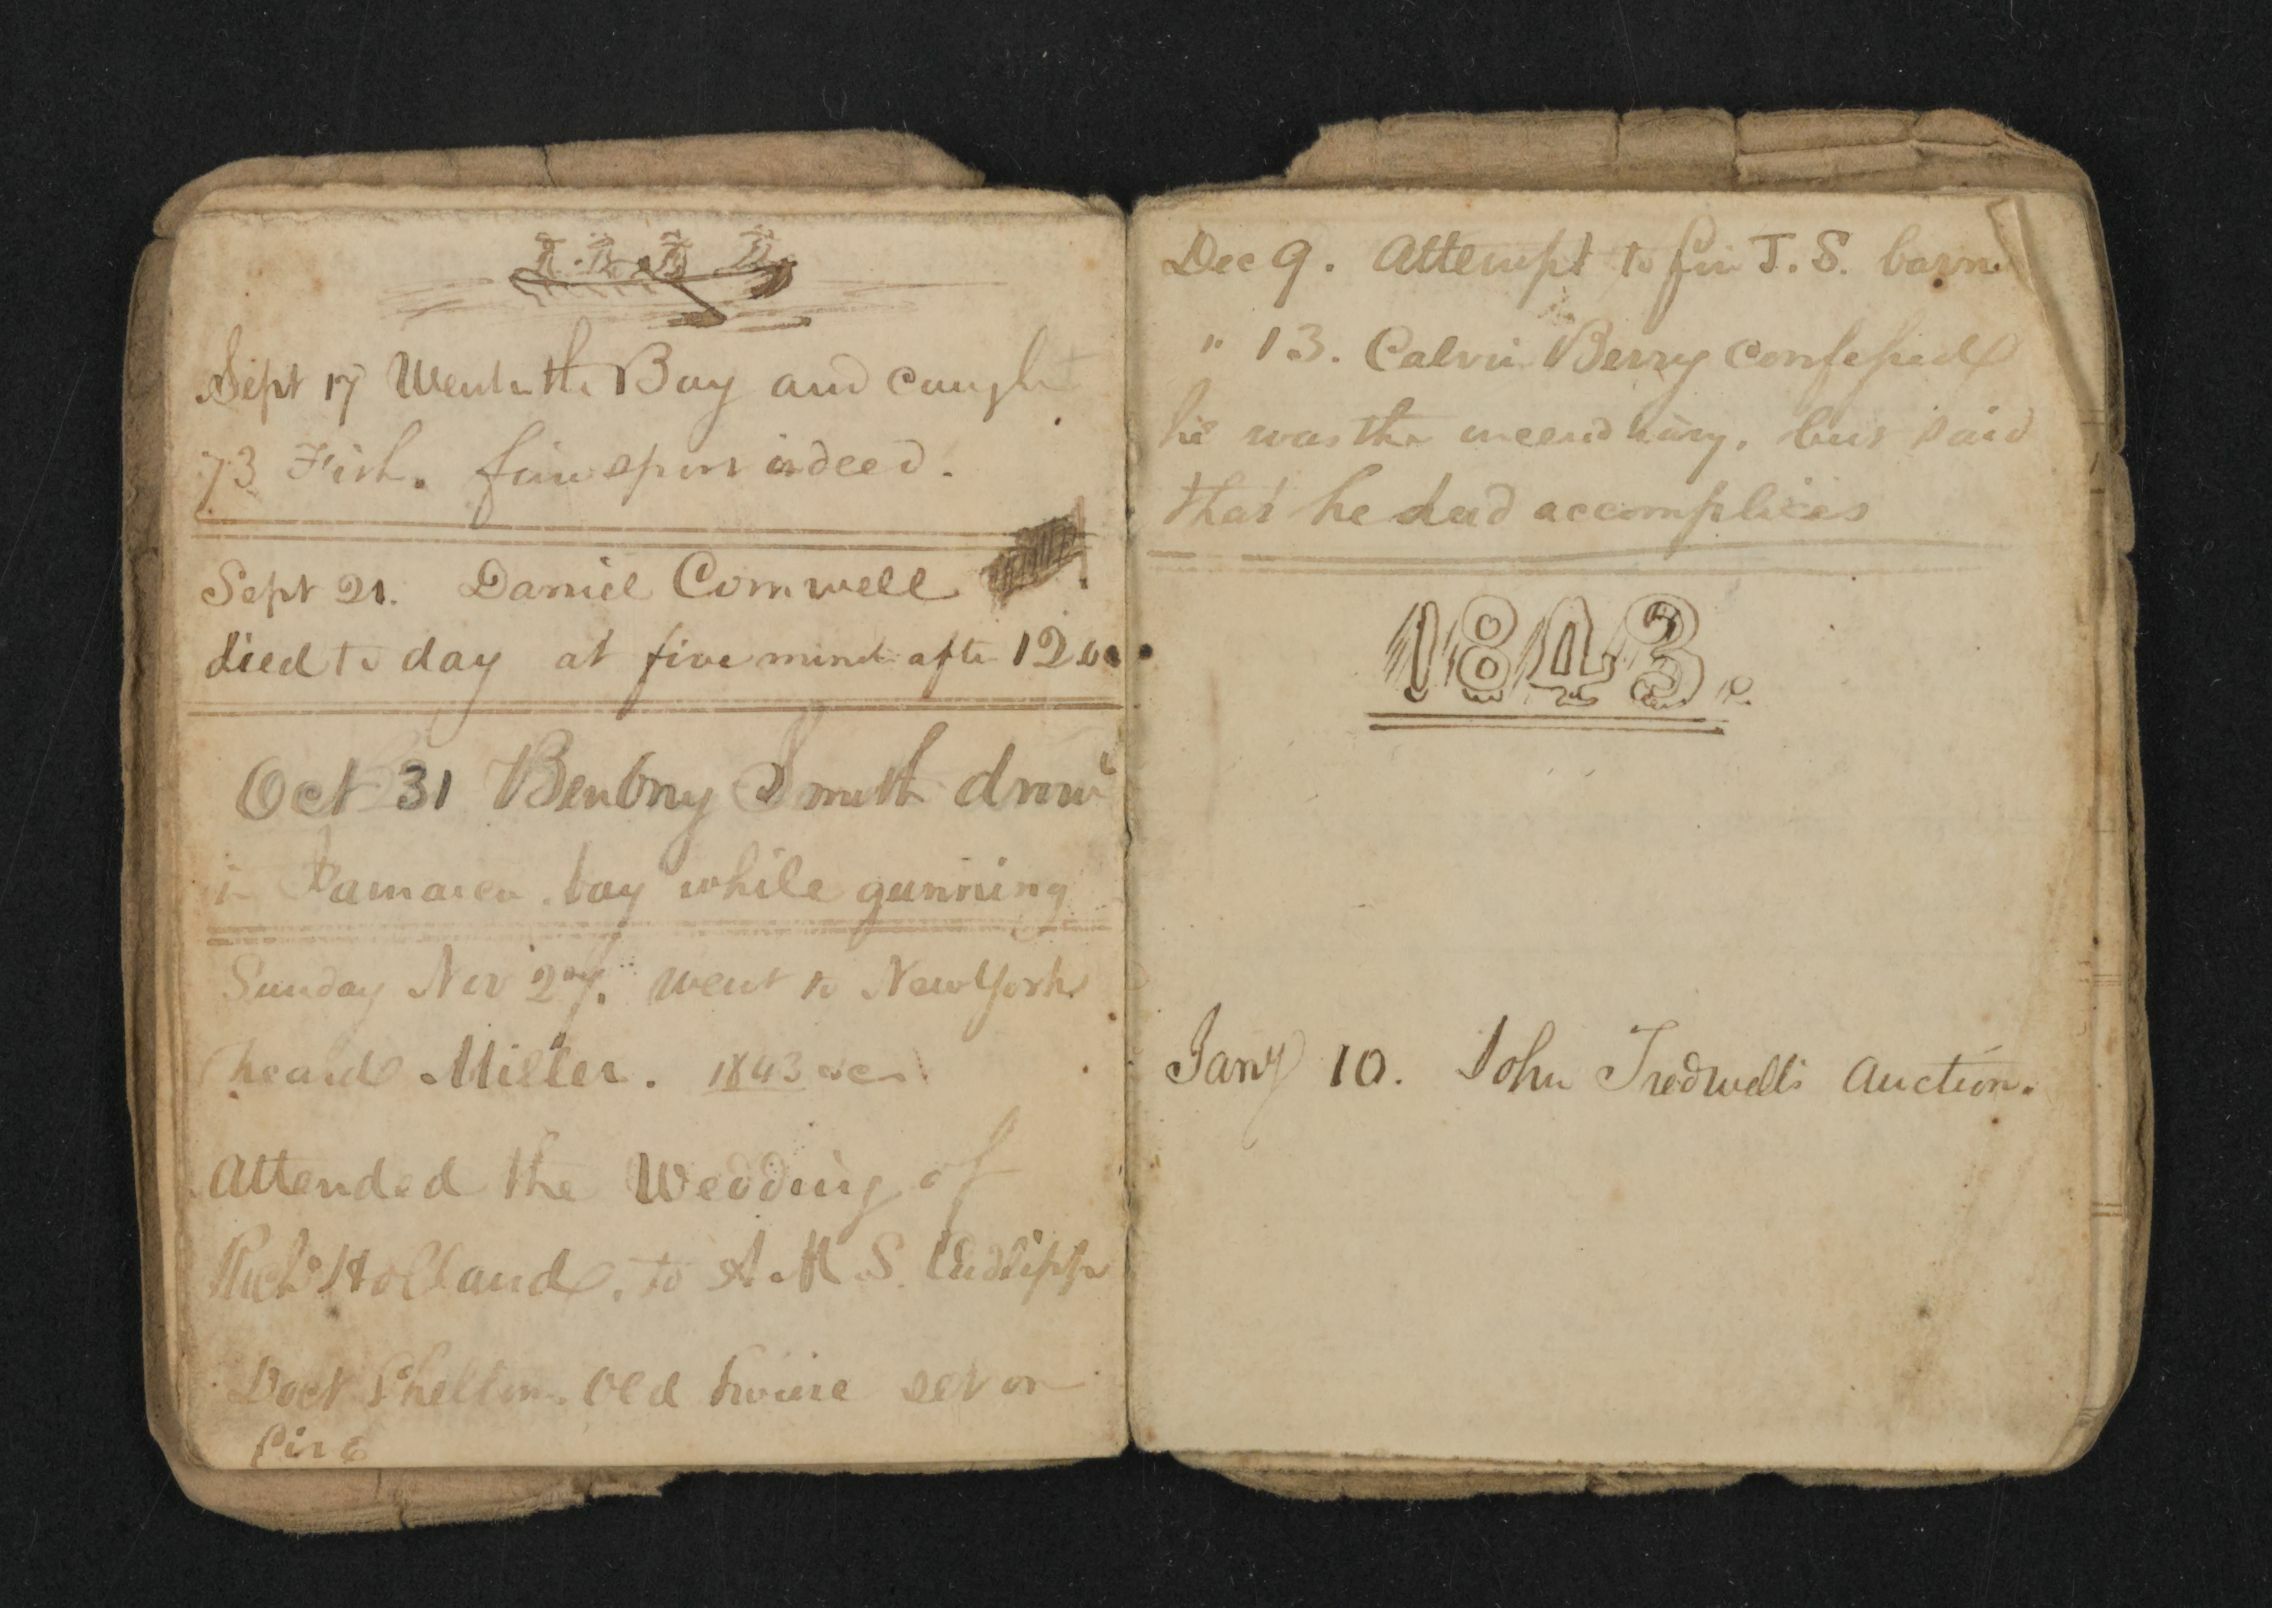 Sept 17 Went to the Bay and caught
73 Fish. fine sport indeed.
Sept 21. Daniel Cornwell
died to day at five minut after 12 oc
Oct 31 Benbny Smith drow
in Jamaica bay while gunning
Sunday Nov 27. went to New York
heard Miller. 1843 &c
Attended the Wedding of
Richd Holland. to A M S. Cudlipp
Doct Shelton Old house set on
fire
Dec 9. Attempt to fire J. S. barn
" 13. Calvin Berry confessed
he was the incendiary. but said
that he had accomplices
1843.
Jany 10. John Tredwell's Auction.